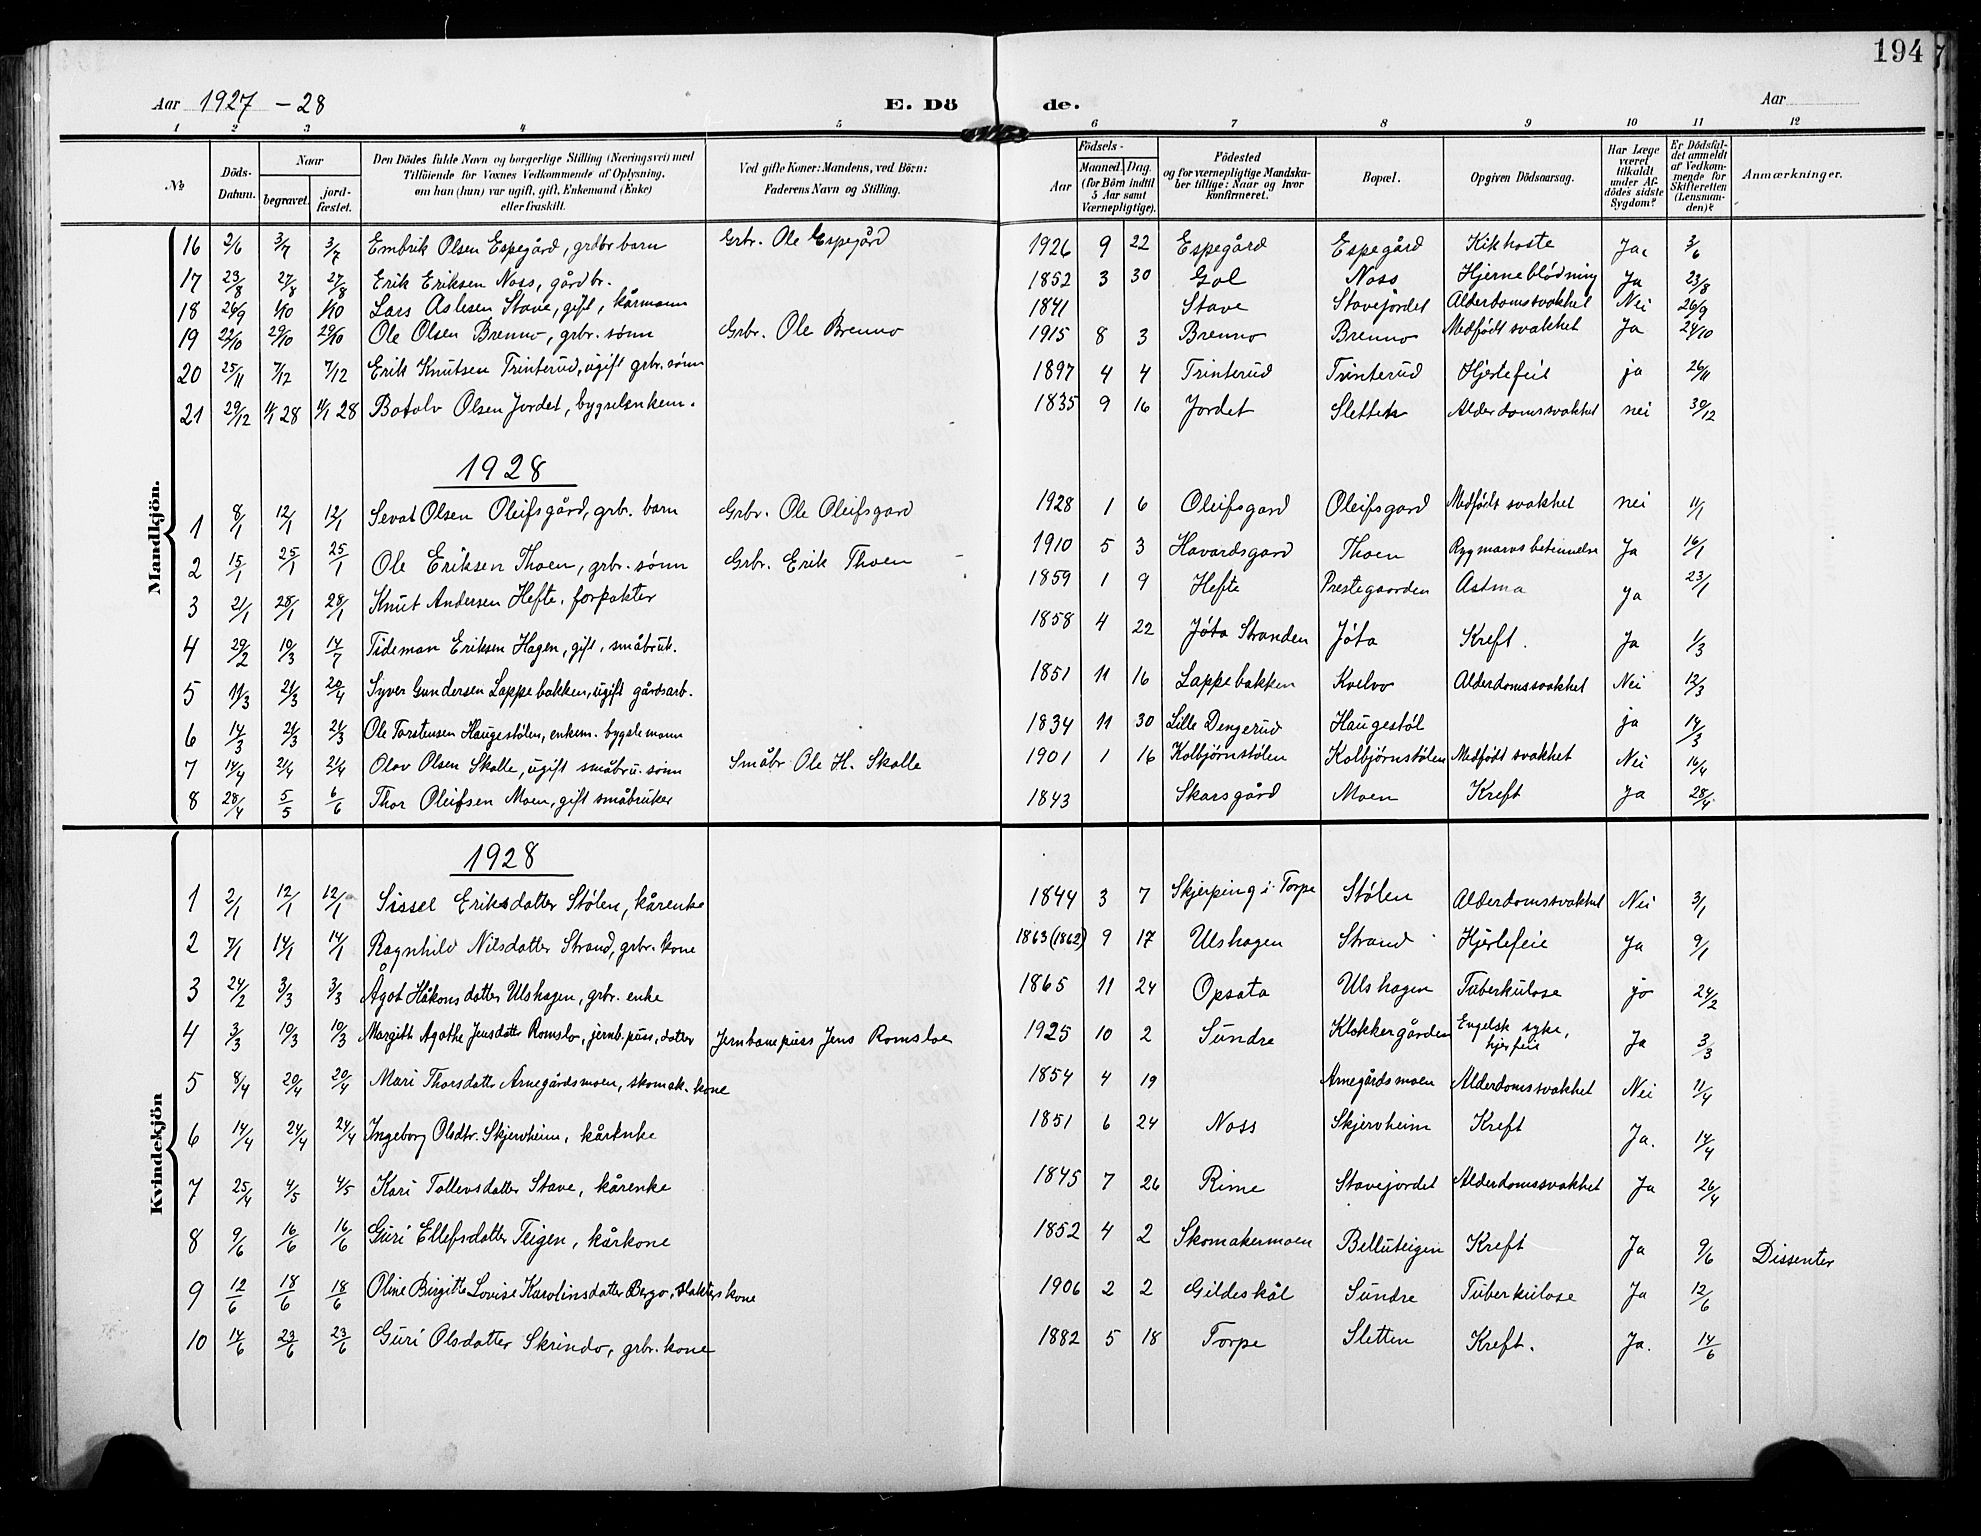 194
Aar 1927 - 28
E. Dö de.
Aar
1 2 3 4 5 6 7 8 9 10 11 12
№
Döds-Datum.
Naar
begravet.
jord-fæstet.
Den Dödes fulde Navn og borgerlige Stilling (Næringsvei) med
Tilföiende for Voxnes Vedkommende af Oplysning,
om han (hun) var ugift, gift, Enkemand (Enke)
eller fraskilt.
Ved gifte Koner: Mandens, ved Börn:
Faderens Navn og Stilling.
Födsels-
Aar
Maaned. Dag.
(for Börn indtil
5 Aar samt
Værnepligtige).
Födested
og for værnepligtige Mandska-
ber tillige: Naar og hvor
konfirmeret.
Bopæl.
Opgiven Dödsaarsag.
Har Læge
været
tilkaldt
under Af-
dödes sidste
Sygdom?
Er Dödsfal-
det anmeldt
af Vedkom-
mende for
Skifteretten
(Lensman-
den)?
Anmærkninger.
Mandkjön.
16 2/6 3/7 3/7 Embrik Olsen Espegård, grdbr barn Grbr. Ole Espegård 1926 9 22 Espegård Espegård Kikhoste Ja 3/6
17 23/8 27/8 27/8 Erik Eriksen Noss, gårdbr. 1852 3 30 Gol Noss Hjerneblödning Ja 23/8
18 26/9 1/10 1/10 Lars Aslesen Stave, gift, kårmann 1841 Stave Stavejordet Alderdomssvakhet Nei 26/9
19 22/10 29/10 29/10 Ole Olsen Brenno, grbr. sønn Grbr. Ole Brenno 1915 8 3 Brenno Brenno Medfødt svakhet Ja 24/10
20 25/11 7/12 7/12 Erik Knutsen Trinterud, ugift grbr. sønn 1897 4 4 Trinterud Trinterud Hjertefeil ja 26/11
21 29/12 11/1 28 11/1 28 Botolv Olsen Jordet, bygselenkem. 1835 9 16 Jordet Sletten Alderdomssvakhet nei 30/12
1928
1 8/1 12/1 12/1 Sevat Olsen Oleifsgård, grbr. barn Grbr. Ole Oleifsgard 1928 1 6 Oleifsgard Oleifsgard Medfödt svakhet nei 11/1
2 15/1 25/1 25/1 Ole Eriksen Thoen, grbr. sønn Grbr. Erik Thoen 1910 5 3 Havardsgard Thoen Rygmarvsbetennelse Ja 16/1
3 21/1 28/1 28/1 Knut Andersen Hefte, forpakter 1859 1 9 Hefte Prestegaarden Astma ya 23/1
4 29/2 10/3 17/7 Tideman Eriksen Hagen, gift, småbruk. 1858 4 22 Jøta Stranden Jøta Kreft. Ja 1/3
5 11/3 21/3 20/4 Syver Gundersen Lappebakken, ugift gårdsarb. 1851 11 16 Lappebakken Kvelvo Alderdomssvakhet Nei 12/3
6 14/3 21/3 21/3 Ole Torstensen Haugestølen, enkem. bygslemann 1834 11 30 Lille Dengerud Haugestøl ja 14/3
7 14/4 21/4 21/4 Olav Olsen Skalle, ugift småbru. sønn Småbr Ole H. Skalle 1901 1 16 Kolbjørnstølen Kolbjørnstølen Medfødt svakhet Nei 16/4
8 28/4 5/5 6/6 Thor Oleifsen Moen, gift småbruker 1843 Skarsgård Moen Kreft Ja 28/4
Kvindekjön
1928
1 2/1 12/1 12/1 Sissel Eriksdatter Stølen, kårenke 1844 3 7 Skjerping i Torpe Stølen Alderdomssvakhet Nei 3/1
2 7/1 14/1 14/1 Ragnhild Nilsdatter Strand, grbr. kone 1863 (1862) 9 17 Ulshagen Strand Hjertefeil Ja 9/1
3 24/2 3/3 3/3 Ågot Håkonsdatter Ulshagen, grbr. enke 1865 11 24 Opsata Ulshagen Tuberkulose ja 24/2
4 3/3 10/3 10/3 Margitt Agathe Jensdatter Romslo, jernb. puss. datter Jernbanepuss Jens Romsloe 1925 10 2 Sundre Klokkergården Engelsk syke, hjerfeil Ja 3/3
5 8/4 20/4 20/4 Mari Thorsdatter Arnegårdsmoen, skomak. kone 1854 4 19 Arnegårdsmoen Alderdomssvakhet Nei 11/4
6 14/4 24/4 24/4 Ingeborg Olsdtr. Skjervheim, kårenke 1851 6 24 Noss Skjervheim Kreft Ja. 14/4
7 25/4 4/5 4/5 Kari Tollevsdatter Stave, kårenke 1845 7 26 Rime Stavejordet Alderdomssvakhet Ja 26/4
8 9/6 16/6 16/6 Guri Ellefsdatter Teigen, kårkone 1852 4 2 Skomakermoen Belluteigen Kreft Ja 9/6 Dissenter
9 12/6 18/6 18/6 Oline Birgitte Lovise Karolinsdatter Bergo, slakters kone 1906 2 2 Gildeskål Sundre Tuberkulose Ja 12/6
10 14/6 23/6 23/6 Guri Olsdatter Skrindo, grbr. kone 1882 5 18 Torpe Sletten Kreft. Ja. 14/6